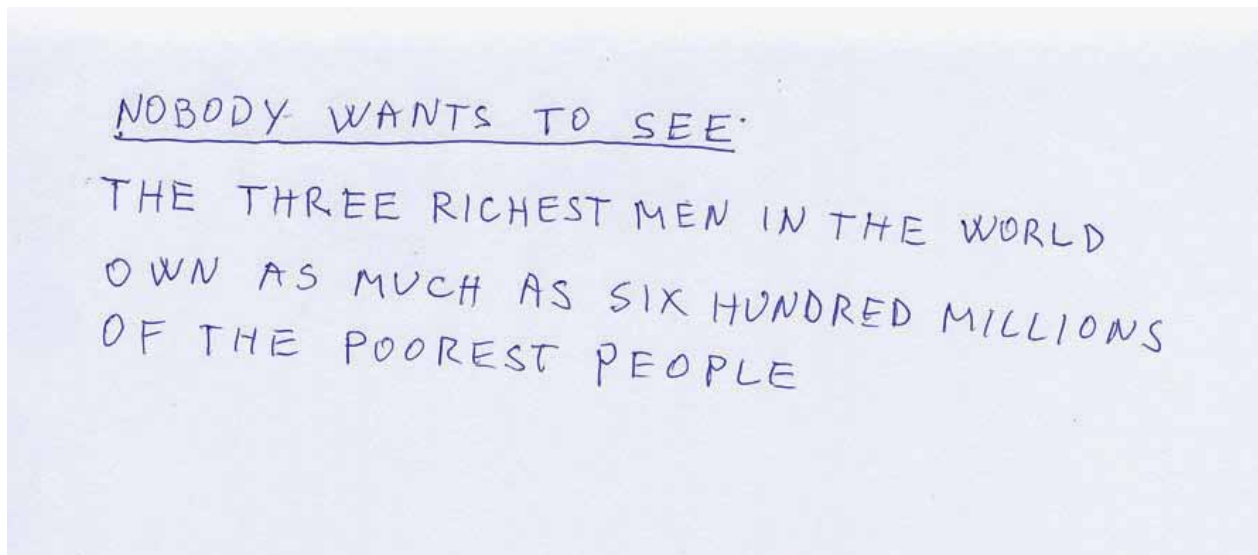 NOBODY WANTS TO SEE
THE THREE RICHEST MEN IN THE WORLD
OWN AS MUCH AS SIX HUNDRED MILLIONS
OF THE POOREST PEOPLE